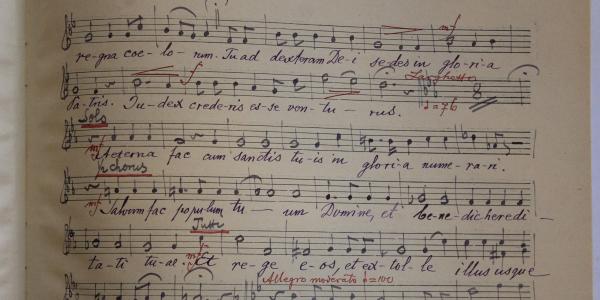 mf
re-gna coe-lo-rum. Tu ad dexteram De-i sedes in glo-ri-a
f
Larghetto
Pa-tris. Ju-dex crede-ris es-se ven-tu-rus. ♩=76
Solo
mf Aeterna fac cum sanctis tu-is in glori-a nume-ra-ri.
chorus
mf Salvum fac populum tu-um Domine, et be-ne-dic heredi-
Tutti
ta-ti tuae. mf Et re-ge e-os, et ex-tol-le illus usque
Allegro moderato =100